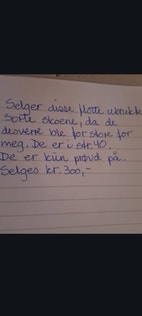 Selger disse flotte ubrukte
sorte skoene, da de
desverre ble for store for
meg. De er i str. 40.
De er kun prøvd på.
Selges kr. 300,-